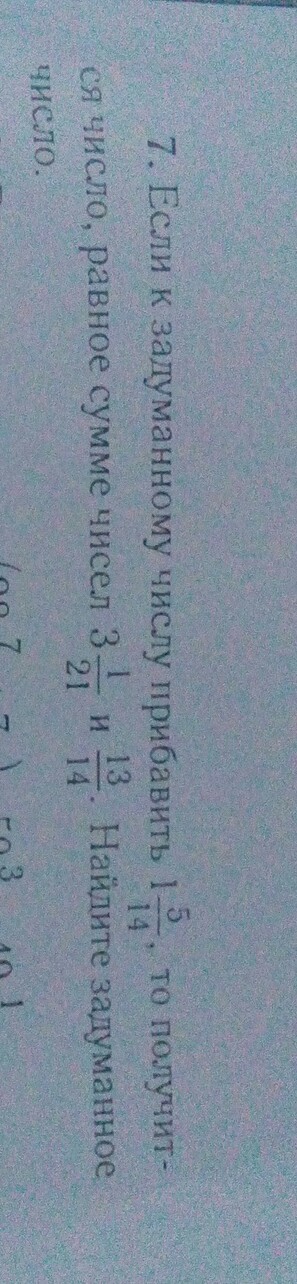 7. Если к задуманному числу прибавить 1 5/14, то получит-
ся число, равное сумме чисел 3 1/21 и 13/14. Найдите задуманное
число.